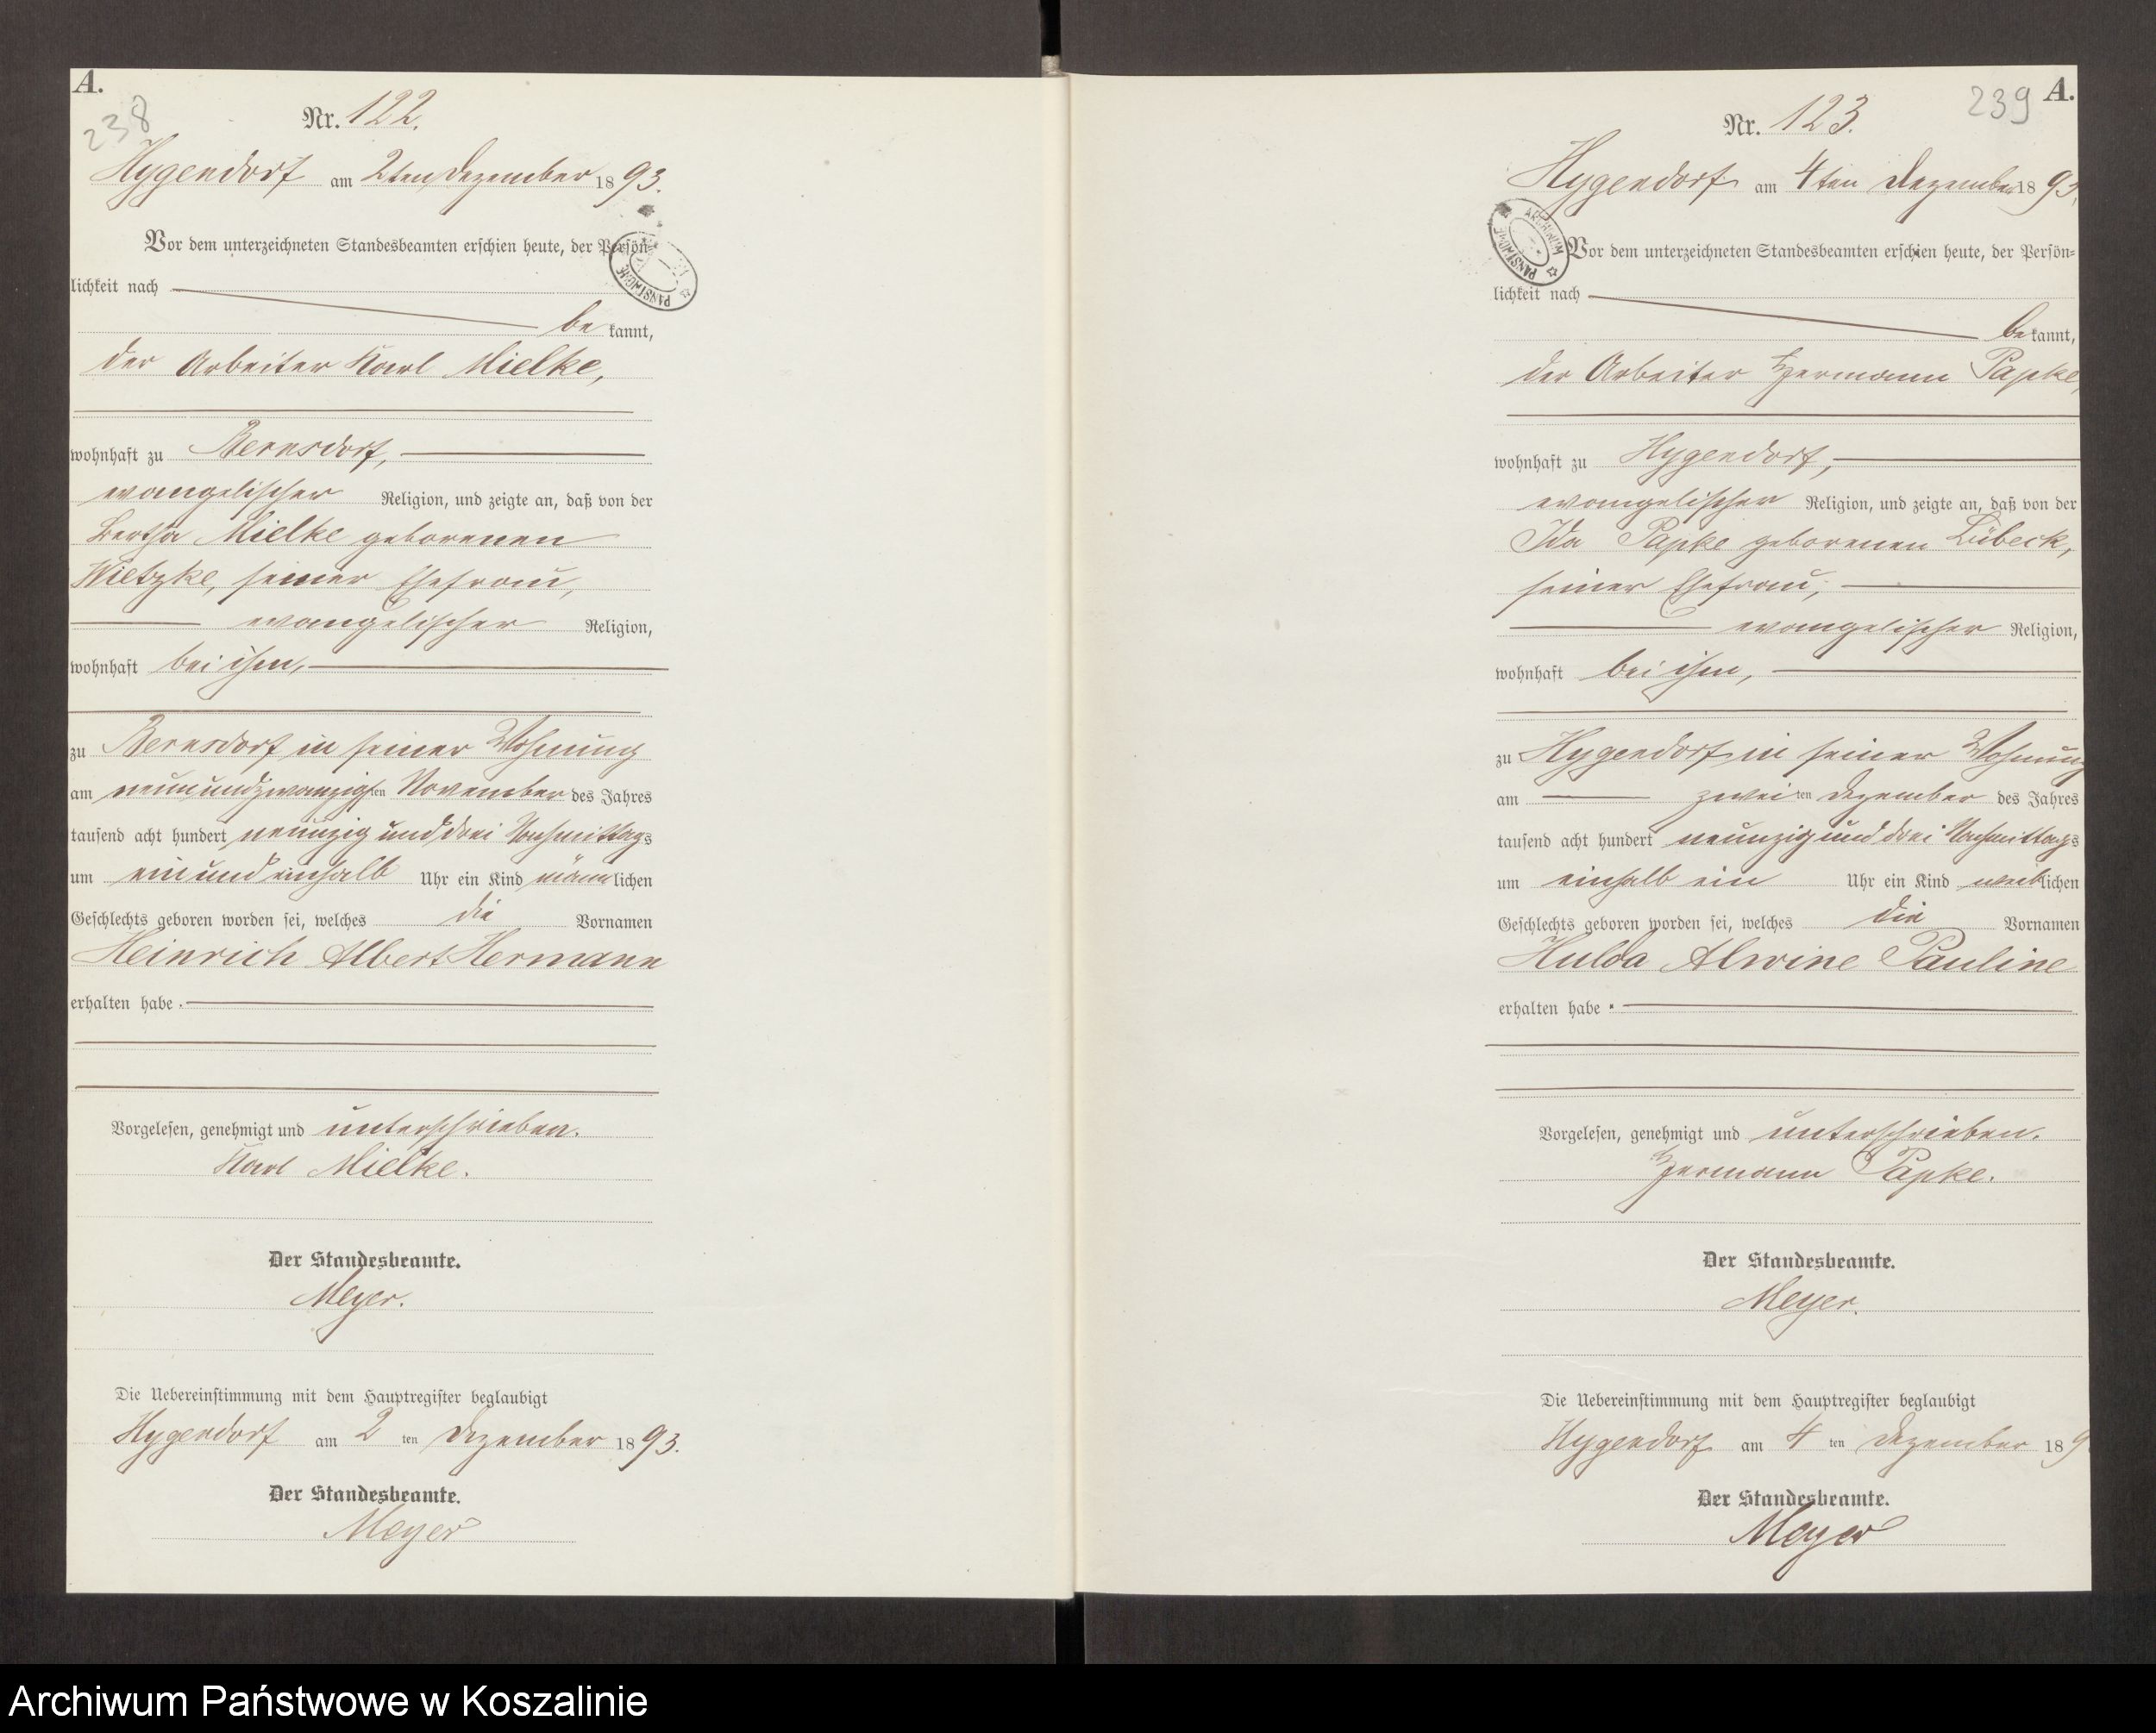 A.
238
Nr. 122.
Hygendorf am 2ten Dezember 1893.
Vor dem unterzeichneten Standesbeamten erschien heute, der Persön-
lichkeit nach
bekannt,
der Arbeiter Karl Mielke,
wohnhaft zu Bernsdorf,
evangelischer Religion, und zeigte an, daß von der
Bertha Mielke geborenen
Wietzke, seiner Ehefrau,
evangelischer Religion,
wohnhaft bei ihm,
zu Bernsdorf in seiner Wohnung
am neunundzwanzigsten November des Jahres
tausend acht hundert neunzig und drei Nachmittags
um ein und einhalb Uhr ein Kind männlichen
Geschlechts geboren worden sei, welches die Vornamen
Heinrich Albert Hermann
erhalten habe.
Vorgelesen, genehmigt und unterschrieben.
Karl Mielke.
Der Standesbeamte.
Meyer.
Die Uebereinstimmung mit dem Hauptregister beglaubigt
Hygendorf am 2ten Dezember 1893.
Der Standesbeamte.
Meyer
239
A.
Nr. 123.
Hygendorf am 4ten Dezember 1893.
Vor dem unterzeichneten Standesbeamten erschien heute, der Persön-
lichkeit nach
bekannt,
der Arbeiter Hermann Papke,
wohnhaft zu Hygendorf,
evangelischer Religion, und zeigte an, daß von der
Ida Papke geborenen Lübeck,
seiner Ehefrau,
evangelischer Religion,
wohnhaft bei ihm,
zu Hygendorf in seiner Wohnung
am zweiten Dezember des Jahres
tausend acht hundert neunzig und drei Nachmittags
um einhalb ein Uhr ein Kind weiblichen
Geschlechts geboren worden sei, welches die Vornamen
Hulda Alwine Pauline
erhalten habe.
Vorgelesen, genehmigt und unterschrieben.
Hermann Papke.
Der Standesbeamte.
Meyer.
Die Uebereinstimmung mit dem Hauptregister beglaubigt
Hygendorf am 4ten Dezember 189
Der Standesbeamte.
Meyer
Archiwum Państwowe w Koszalinie